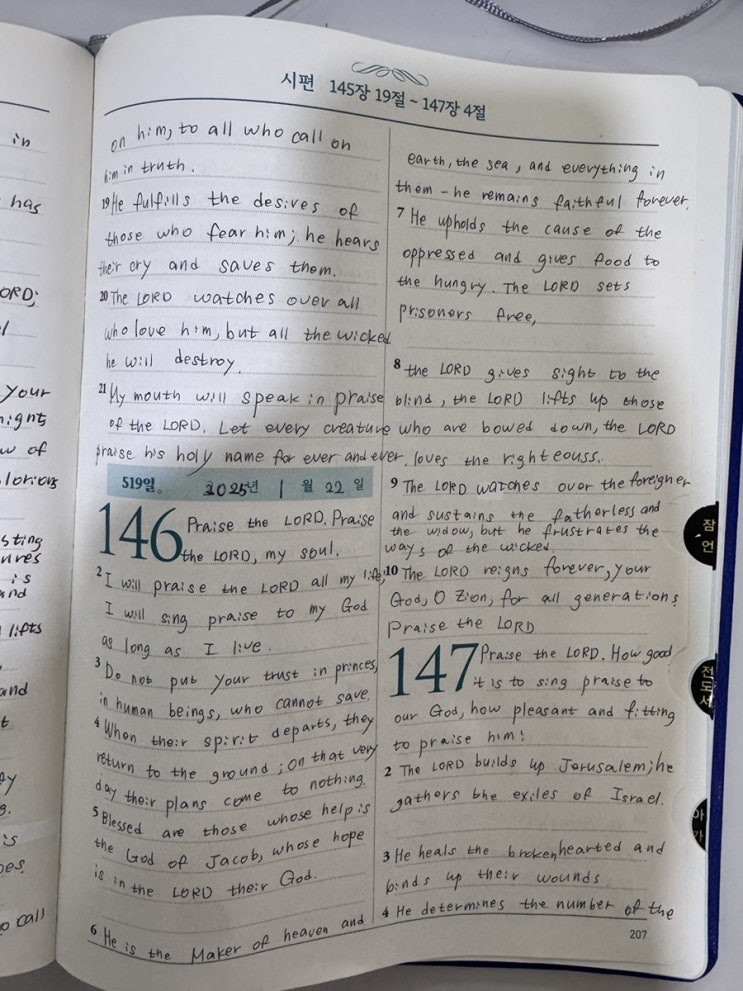 시편 145장 19절 ~ 147장 4절
on him, to all who call on
him in truth.
19 He fulfills the desires of
those who fear him; he hears
their cry and saves them.
20 The LORD watches over all
who love him, but all the wicked
he will destroy.
21 My mouth will speak in praise
of the LORD. Let every creature
praise his holy name for ever and ever.
519일. 2025년 1월 22일
146 Praise the LORD. Praise
the LORD, my soul.
2 I will praise the LORD all my life;
I will sing praise to my God
as long as I live.
3 Do not put your trust in princes,
in human beings, who cannot save.
4 When their spirit departs, they
return to the ground; on that very
day their plans come to nothing.
5 Blessed are those whose help is
the God of Jacob, whose hope
is in the LORD their God.
6 He is the Maker of heaven and
earth, the sea, and everything in
them - he remains faithful forever.
7 He upholds the cause of the
oppressed and gives food to
the hungry. The LORD sets
prisoners free,
8 the LORD gives sight to the
blind, the LORD lifts up those
who are bowed down, the LORD
loves the righteouss.
9 The LORD watches over the foreigner
and sustains the fatherless and
the widow, but he frustrates the
ways of the wicked.
10 The LORD reigns forever, your
God, O Zion, for all generations
Praise the LORD
147 Praise the LORD. How good
it is to sing praise to
our God, how pleasant and fitting
to praise him!
2 The LORD builds up Jerusalem; he
gathers the exiles of Israel.
3 He heals the brokenhearted and
binds up their wounds
4 He determines the number of the
207
잠언
전도서
아가
in
has
ORD;
your
w of
lorious
sting
is
and
lifts
and
is
call